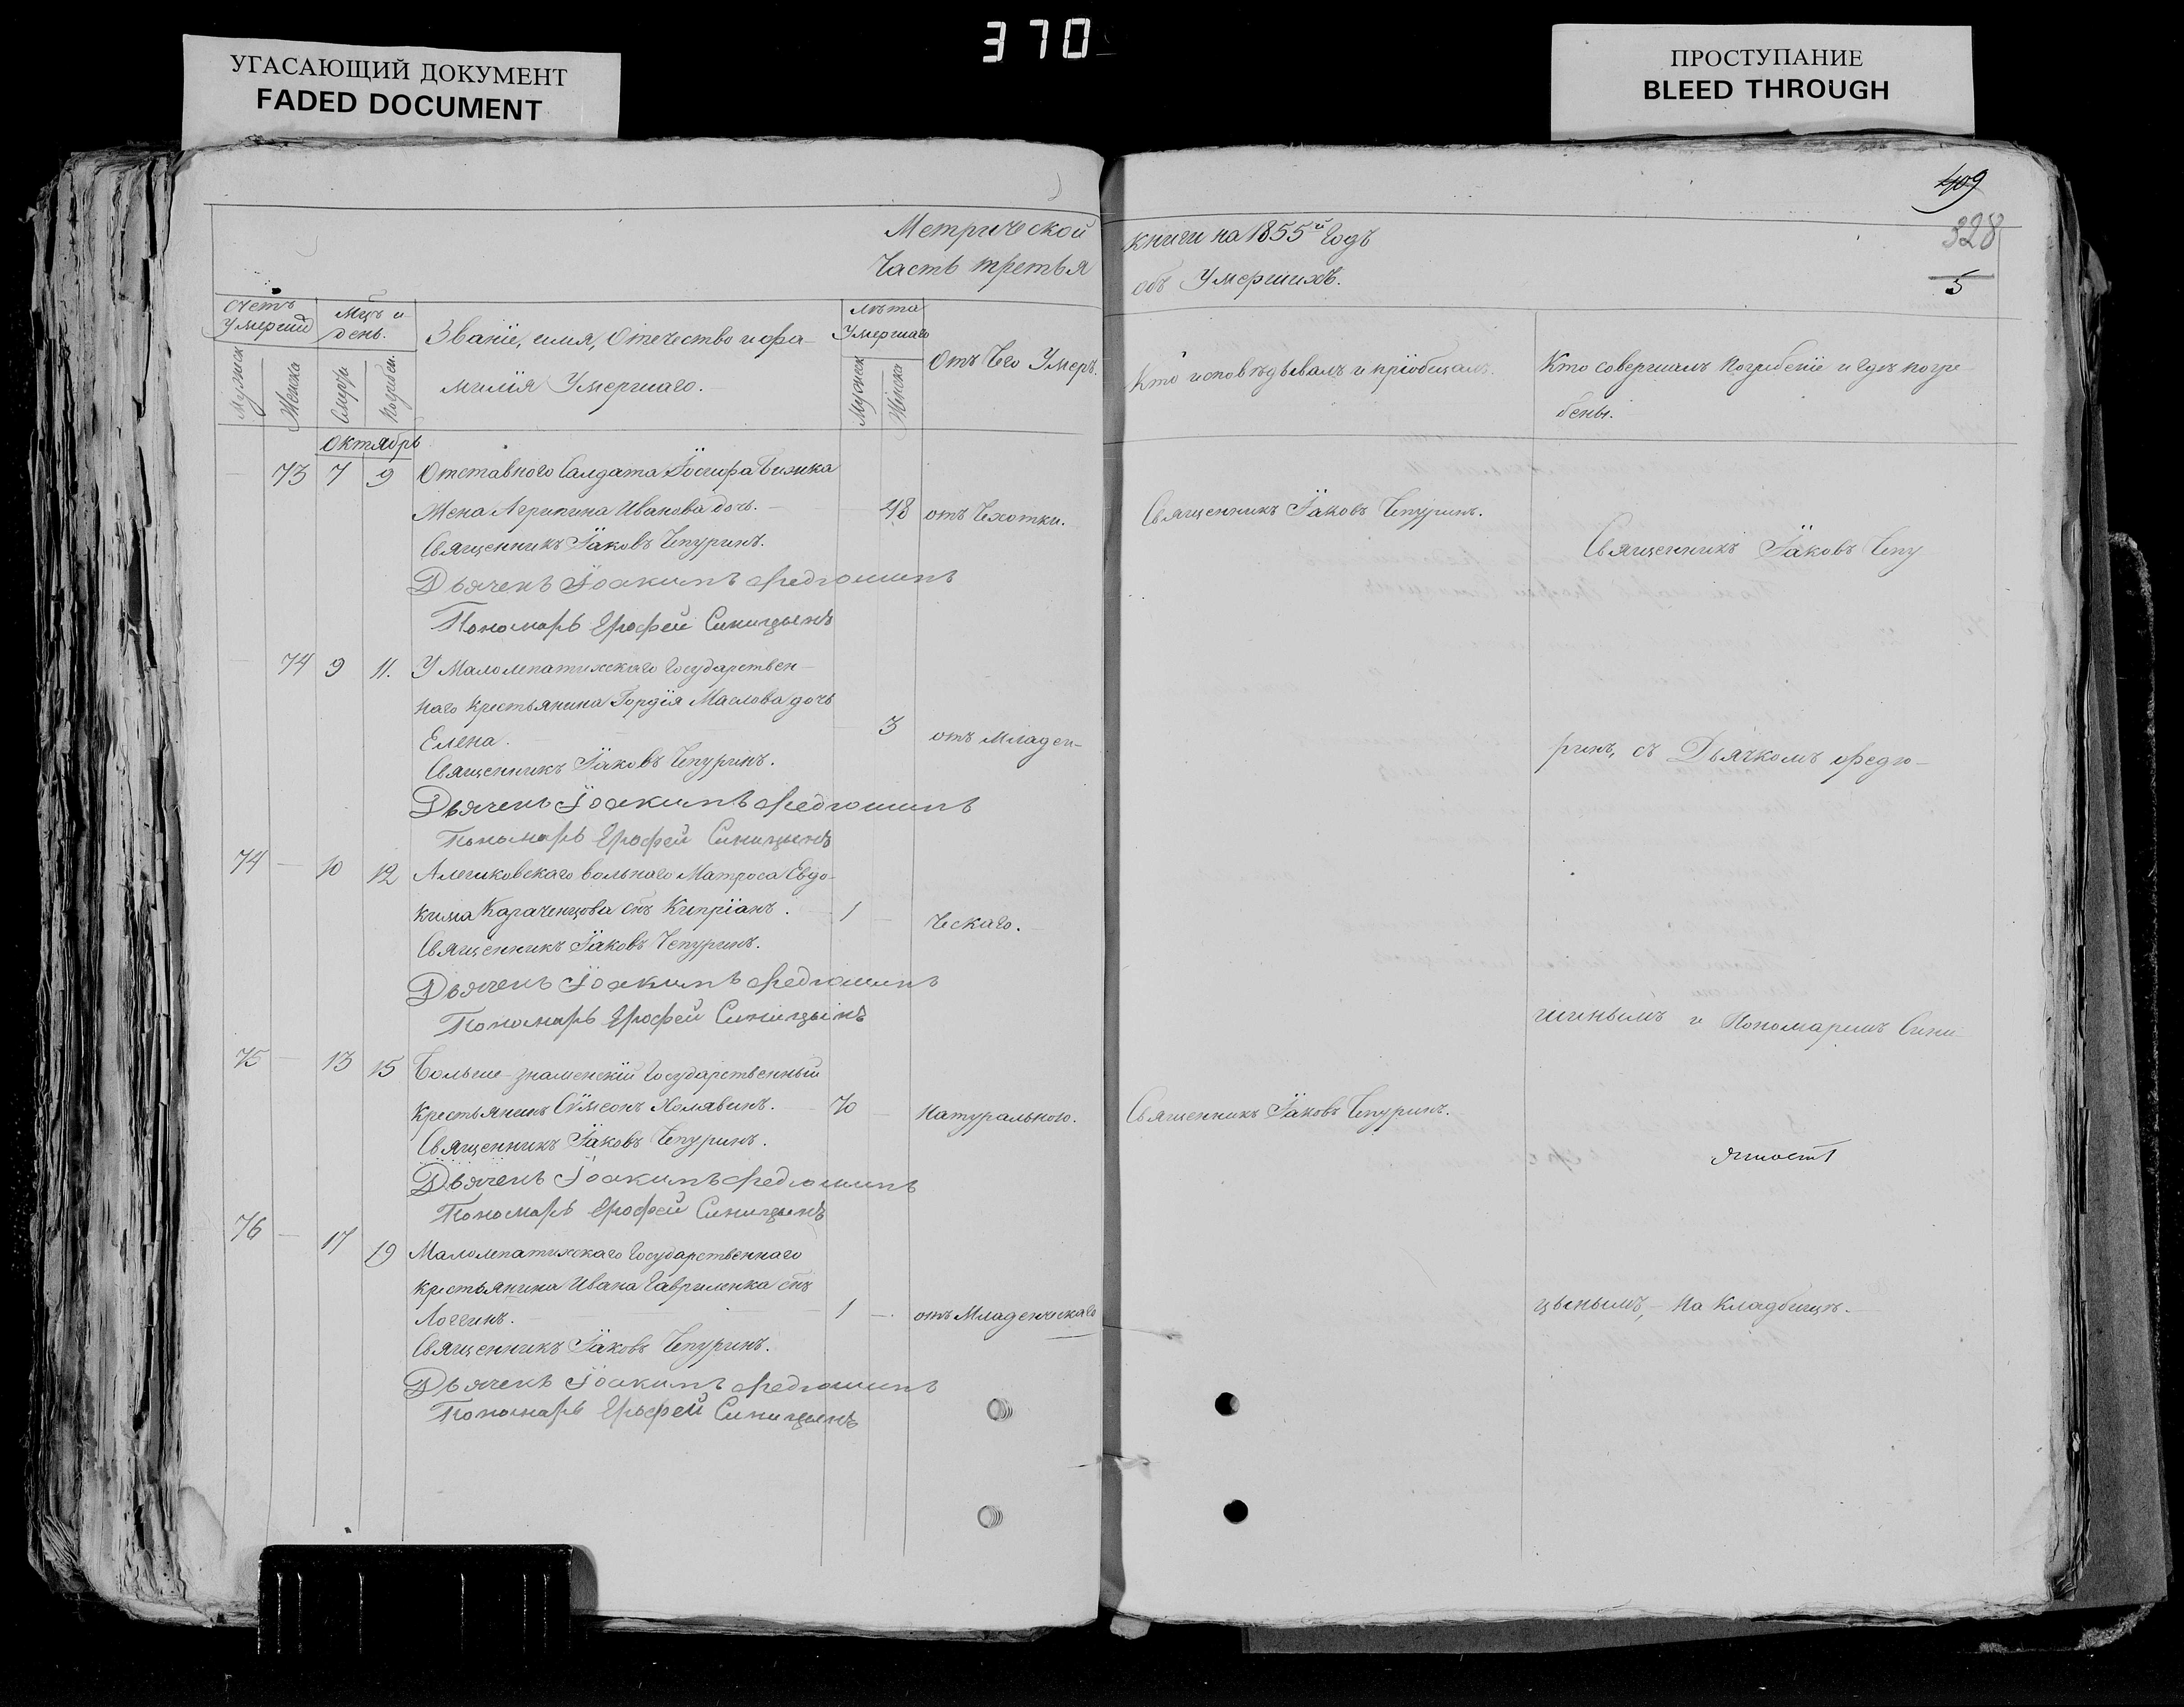 370
УГАСАЮЩИЙ ДОКУМЕНТ
FADED DOCUMENT
ПРОСТУПАНИЕ
BLEED THROUGH
409
328
5
Метрической
Часть третья
книги на 1855й Годъ
объ Умершихъ.
Счетъ Умерший
Мцъ и день.
Званіе, имя, Отечество и фа-
милія Умершаго.
Лѣта Умершаго
Отъ Чего Умеръ.
Кто исповѣдывалъ и пріобщалъ.
Кто совершалъ Погребеніе и гдѣ погре-
бены.
Мужеск
Женска
Смерти
Погребен.
Мужеск
Женска
Октябрь
73 7 9 Отставного Салдата Іосифа
Жена Агрипина Иванова дочь. 48 отъ Чахотки. Священникъ Іаковъ Чепуринъ.
Священникъ Іаковъ Чепуринъ.
Священникъ Іаковъ Чепу
Дьячекъ Іоакимъ Федюшинъ
Пономарь Ерофей Синицынъ
74 9 11. У Малолепатихскаго Государствен-
наго Крестьянина Гордія Маслова дочь
Елена. 3 отъ Младен-
ринъ, съ Дьячкомъ Федю-
Священникъ Іаковъ Чепуринъ.
Дьячекъ Іоакимъ Федюшинъ
Пономарь Ерофей Синицынъ
74 10 12 Алешковскаго вольнаго Матроса Евдо-
кима Караченцова снъ Кипріанъ. 1 ческаго.
Священникъ Іаковъ Чепуринъ.
Дьячекъ Іоакимъ Федюшинъ
Пономарь Ерофей Синицынъ
шинымъ и Пономаримъ Сини
75 13 15 Больше-знаменскій Государственный
Крестьянинъ Сѵмеонъ Холявинъ. 70 Натуральною. Священникъ Іаковъ Чепуринъ.
Священникъ Іаковъ Чепуринъ.
Дьячекъ Іоакимъ Федюшинъ
Пономарь Ерофей Синицынъ
76 17 19 Малолепатихскаго Государственнаго
Крестьянина Ивана Гавриленка снъ
Логгинъ. 1 отъ Младенческаго
цынымъ, на Кладбищѣ.
Священникъ Іаковъ Чепуринъ.
Дьячекъ Іоакимъ Федюшинъ
Пономарь Ерофей Синицынъ